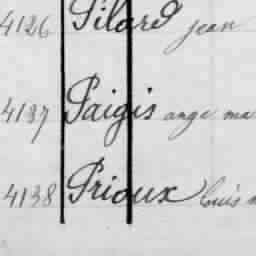 4126 Pilard jean
4137 Paigis ange ma
4138 Prioux louis